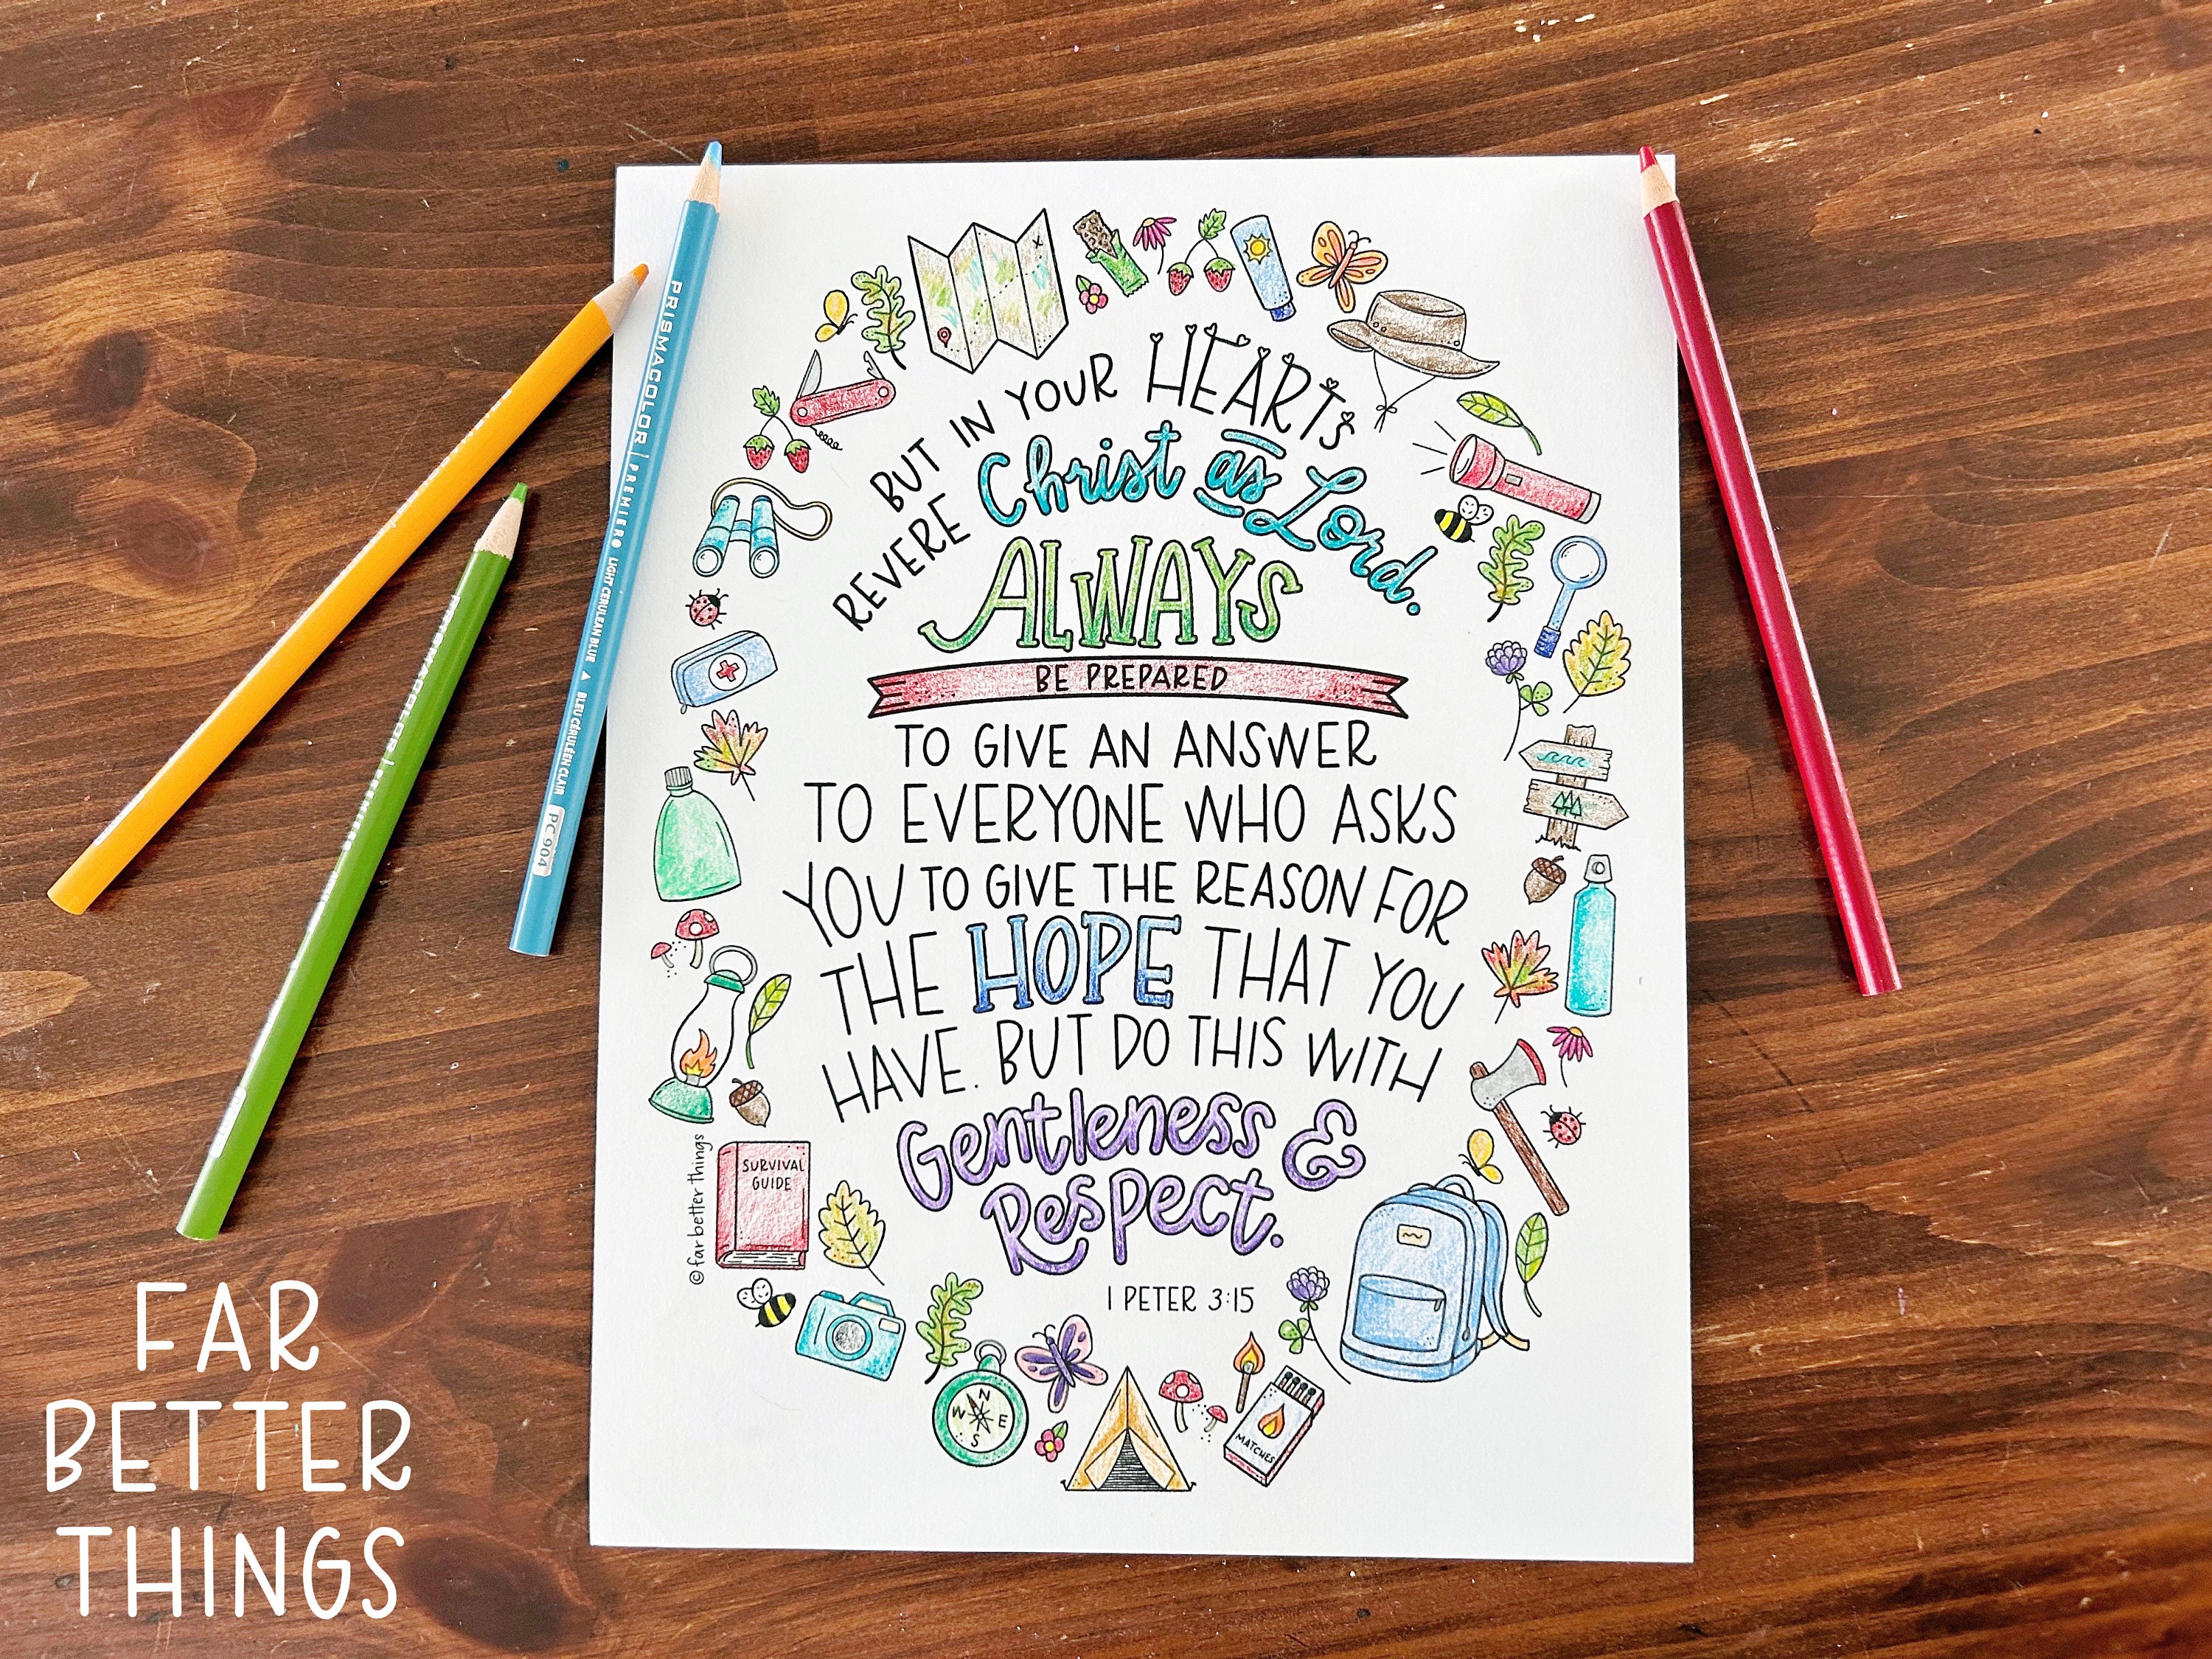 BUT IN YOUR HEARTS
REVERE Christ as Lord.
ALWAYS
BE PREPARED
TO GIVE AN ANSWER
TO EVERYONE WHO ASKS
YOU TO GIVE THE REASON FOR
THE HOPE THAT YOU
HAVE. BUT DO THIS WITH
Gentleness &
Respect.
1 PETER 3:15
SURVIVAL
GUIDE
©far better things
N
W E
S
MATCHES
PRISMACOLOR | PREMIER® LIGHT CERULEAN BLUE ▲ BLEU CÉRULÉEN CLAIR PC904
FAR
BETTER
THINGS